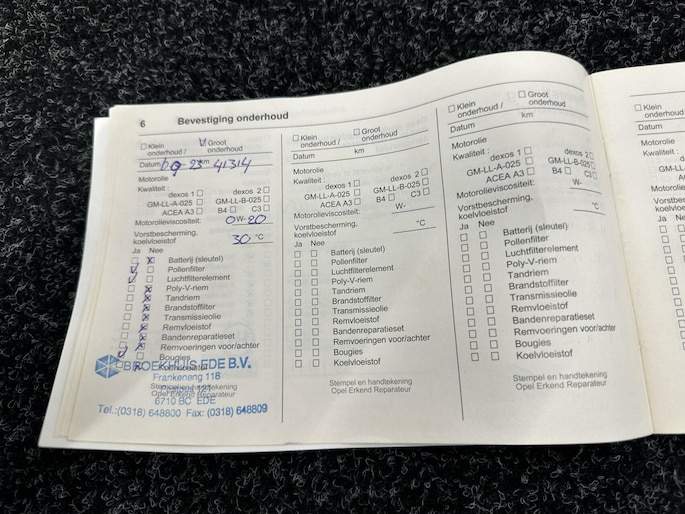 6 Bevestiging onderhoud
☐ Klein onderhoud / ☑ Groot onderhoud
Datum 09-23 km 41314
Motorolie
Kwaliteit :
dexos 1 ☐ dexos 2 ☐
GM-LL-A-025 ☐ GM-LL-B-025 ☐
ACEA A3 ☐ B4 ☐ C3 ☐
Motorolieviscositeit: 0W-20
Vorstbescherming,
koelvloeistof 30 °C
Ja Nee
Batterij (sleutel)
Pollenfilter
Luchtfilterelement
Poly-V-riem
Tandriem
Brandstoffilter
Transmissieolie
Remvloeistof
Bandenreparatieset
Remvoeringen voor/achter
Bougies
Koelvloeistof
BROEKHUIS EDE B.V.
Frankeneng 118
Stempel en handtekening
Opel Erkend Reparateur
6710 BC EDE
Tel.:(0318) 648800 Fax: (0318) 648809
☐ Klein onderhoud / ☐ Groot onderhoud
Datum km
Motorolie
Kwaliteit :
dexos 1 ☐ dexos 2 ☐
GM-LL-A-025 ☐ GM-LL-B-025 ☐
ACEA A3 ☐ B4 ☐ C3 ☐
Motorolieviscositeit: W-
Vorstbescherming,
koelvloeistof °C
Ja Nee
Batterij (sleutel)
Pollenfilter
Luchtfilterelement
Poly-V-riem
Tandriem
Brandstoffilter
Transmissieolie
Remvloeistof
Bandenreparatieset
Remvoeringen voor/achter
Bougies
Koelvloeistof
Stempel en handtekening
Opel Erkend Reparateur
☐ Klein onderhoud / ☐ Groot onderhoud
Datum km
Motorolie
Kwaliteit :
dexos 1 ☐ dexos 2 ☐
GM-LL-A-025 ☐ GM-LL-B-025 ☐
ACEA A3 ☐ B4 ☐ C3 ☐
Motorolieviscositeit: W-
Vorstbescherming,
koelvloeistof °C
Ja Nee
Batterij (sleutel)
Pollenfilter
Luchtfilterelement
Poly-V-riem
Tandriem
Brandstoffilter
Transmissieolie
Remvloeistof
Bandenreparatieset
Remvoeringen voor/achter
Bougies
Koelvloeistof
Stempel en handtekening
Opel Erkend Reparateur
☐ Klein
onderhoud
Datum
Motorolie
Kwaliteit